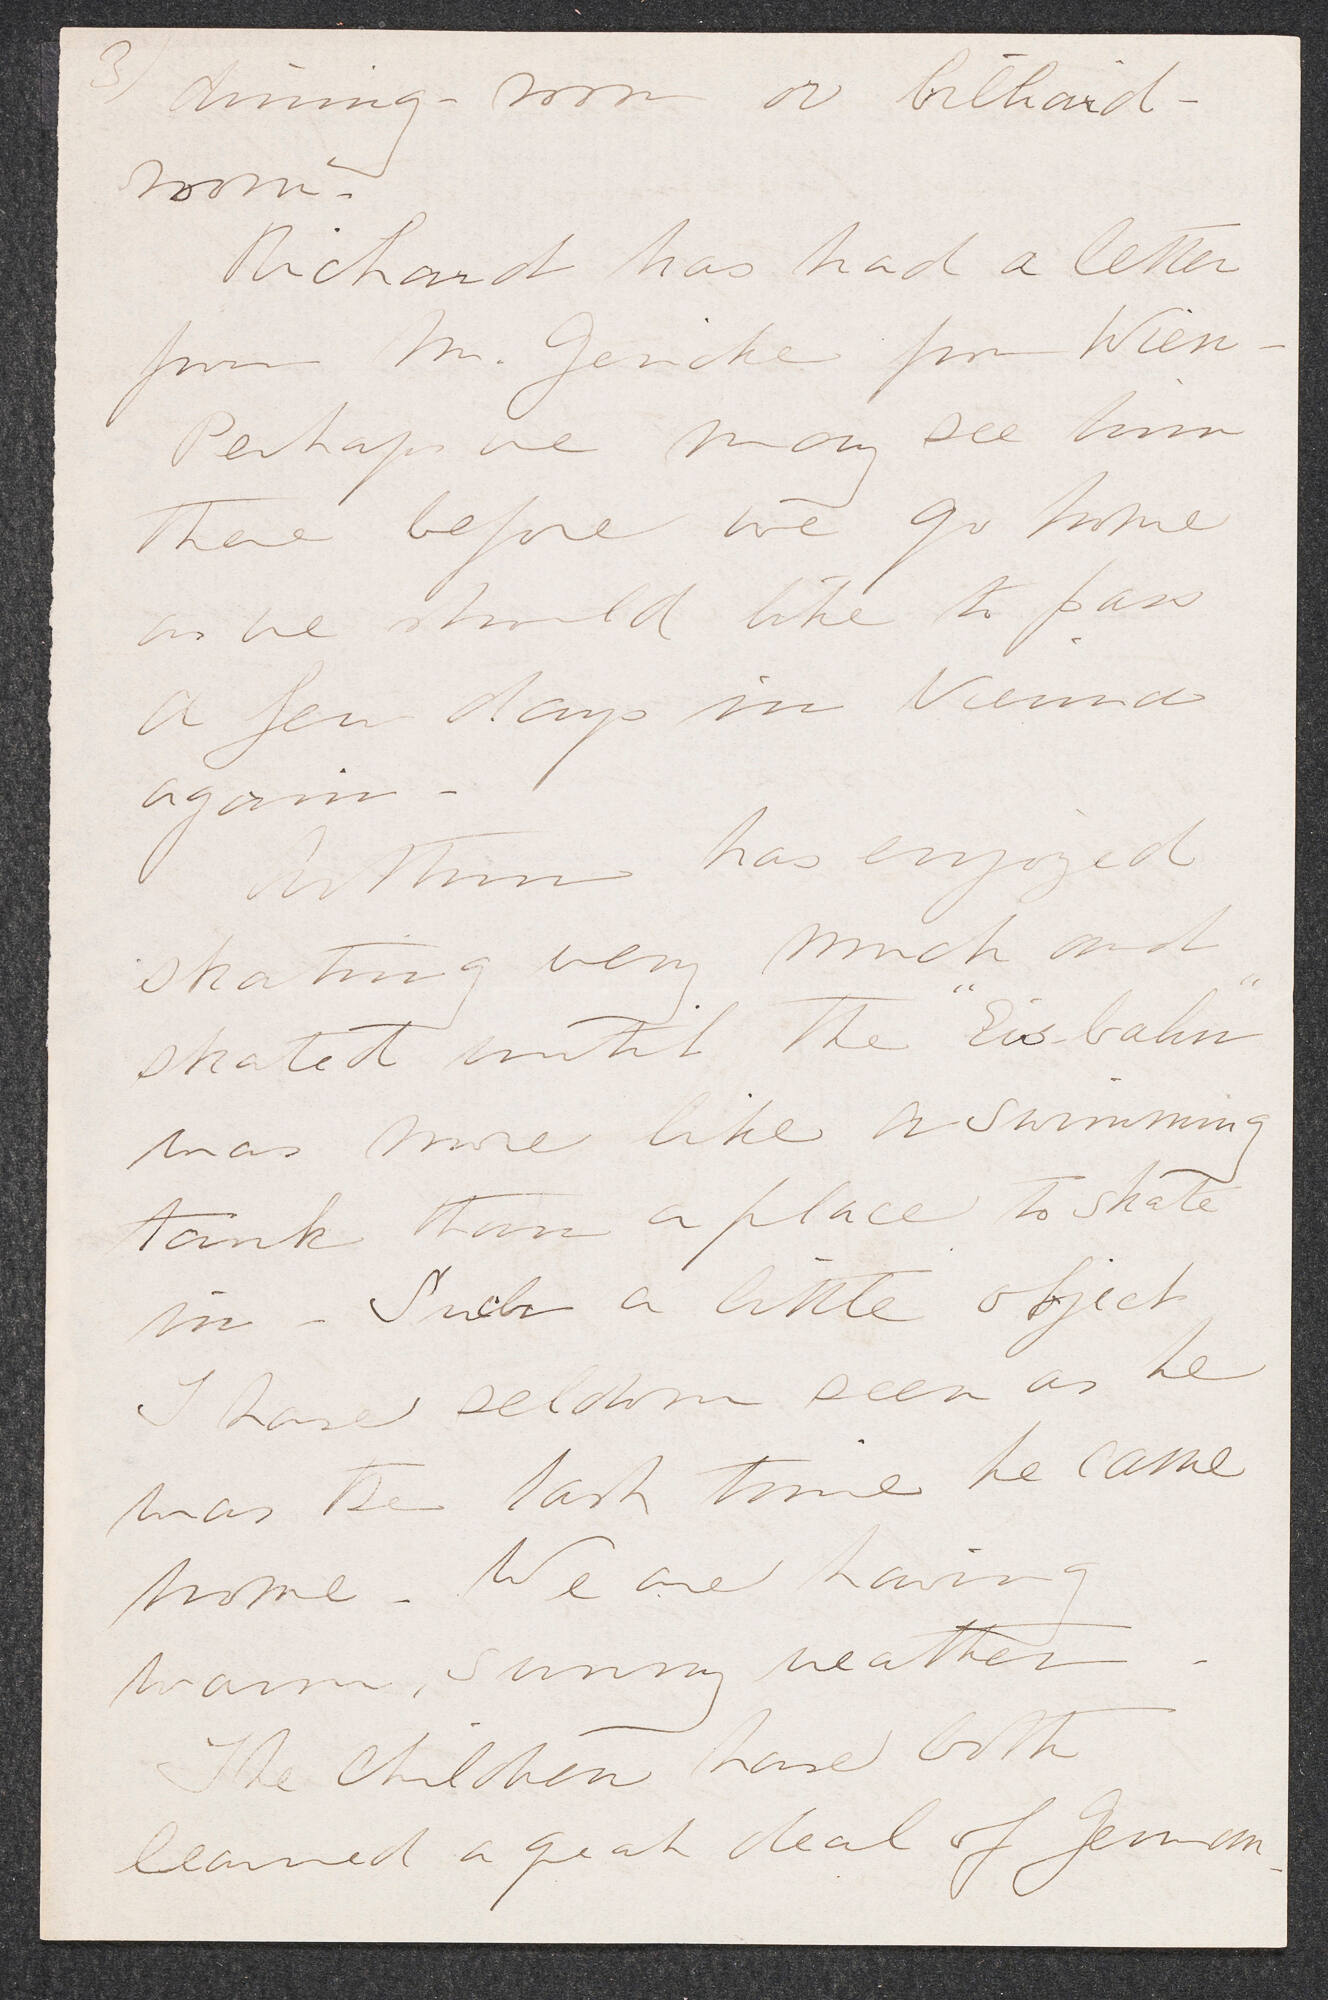 3)
dining-room or billiard-
room.
Richard has had a letter
from Mr. Gericke from Wien-
Perhaps we may see him
there before we go home
as we should like to pass
a few days in Vienna
again -
Arthur has enjoyed
skating very much and
skated until the "Eis-bahn"
was more like a swimming
tank than a place to skate
in - Such a little object
I have seldom seen as he
was the last time he came
home - We are having
warm, sunny weather -
The children have both
learned a great deal of German-